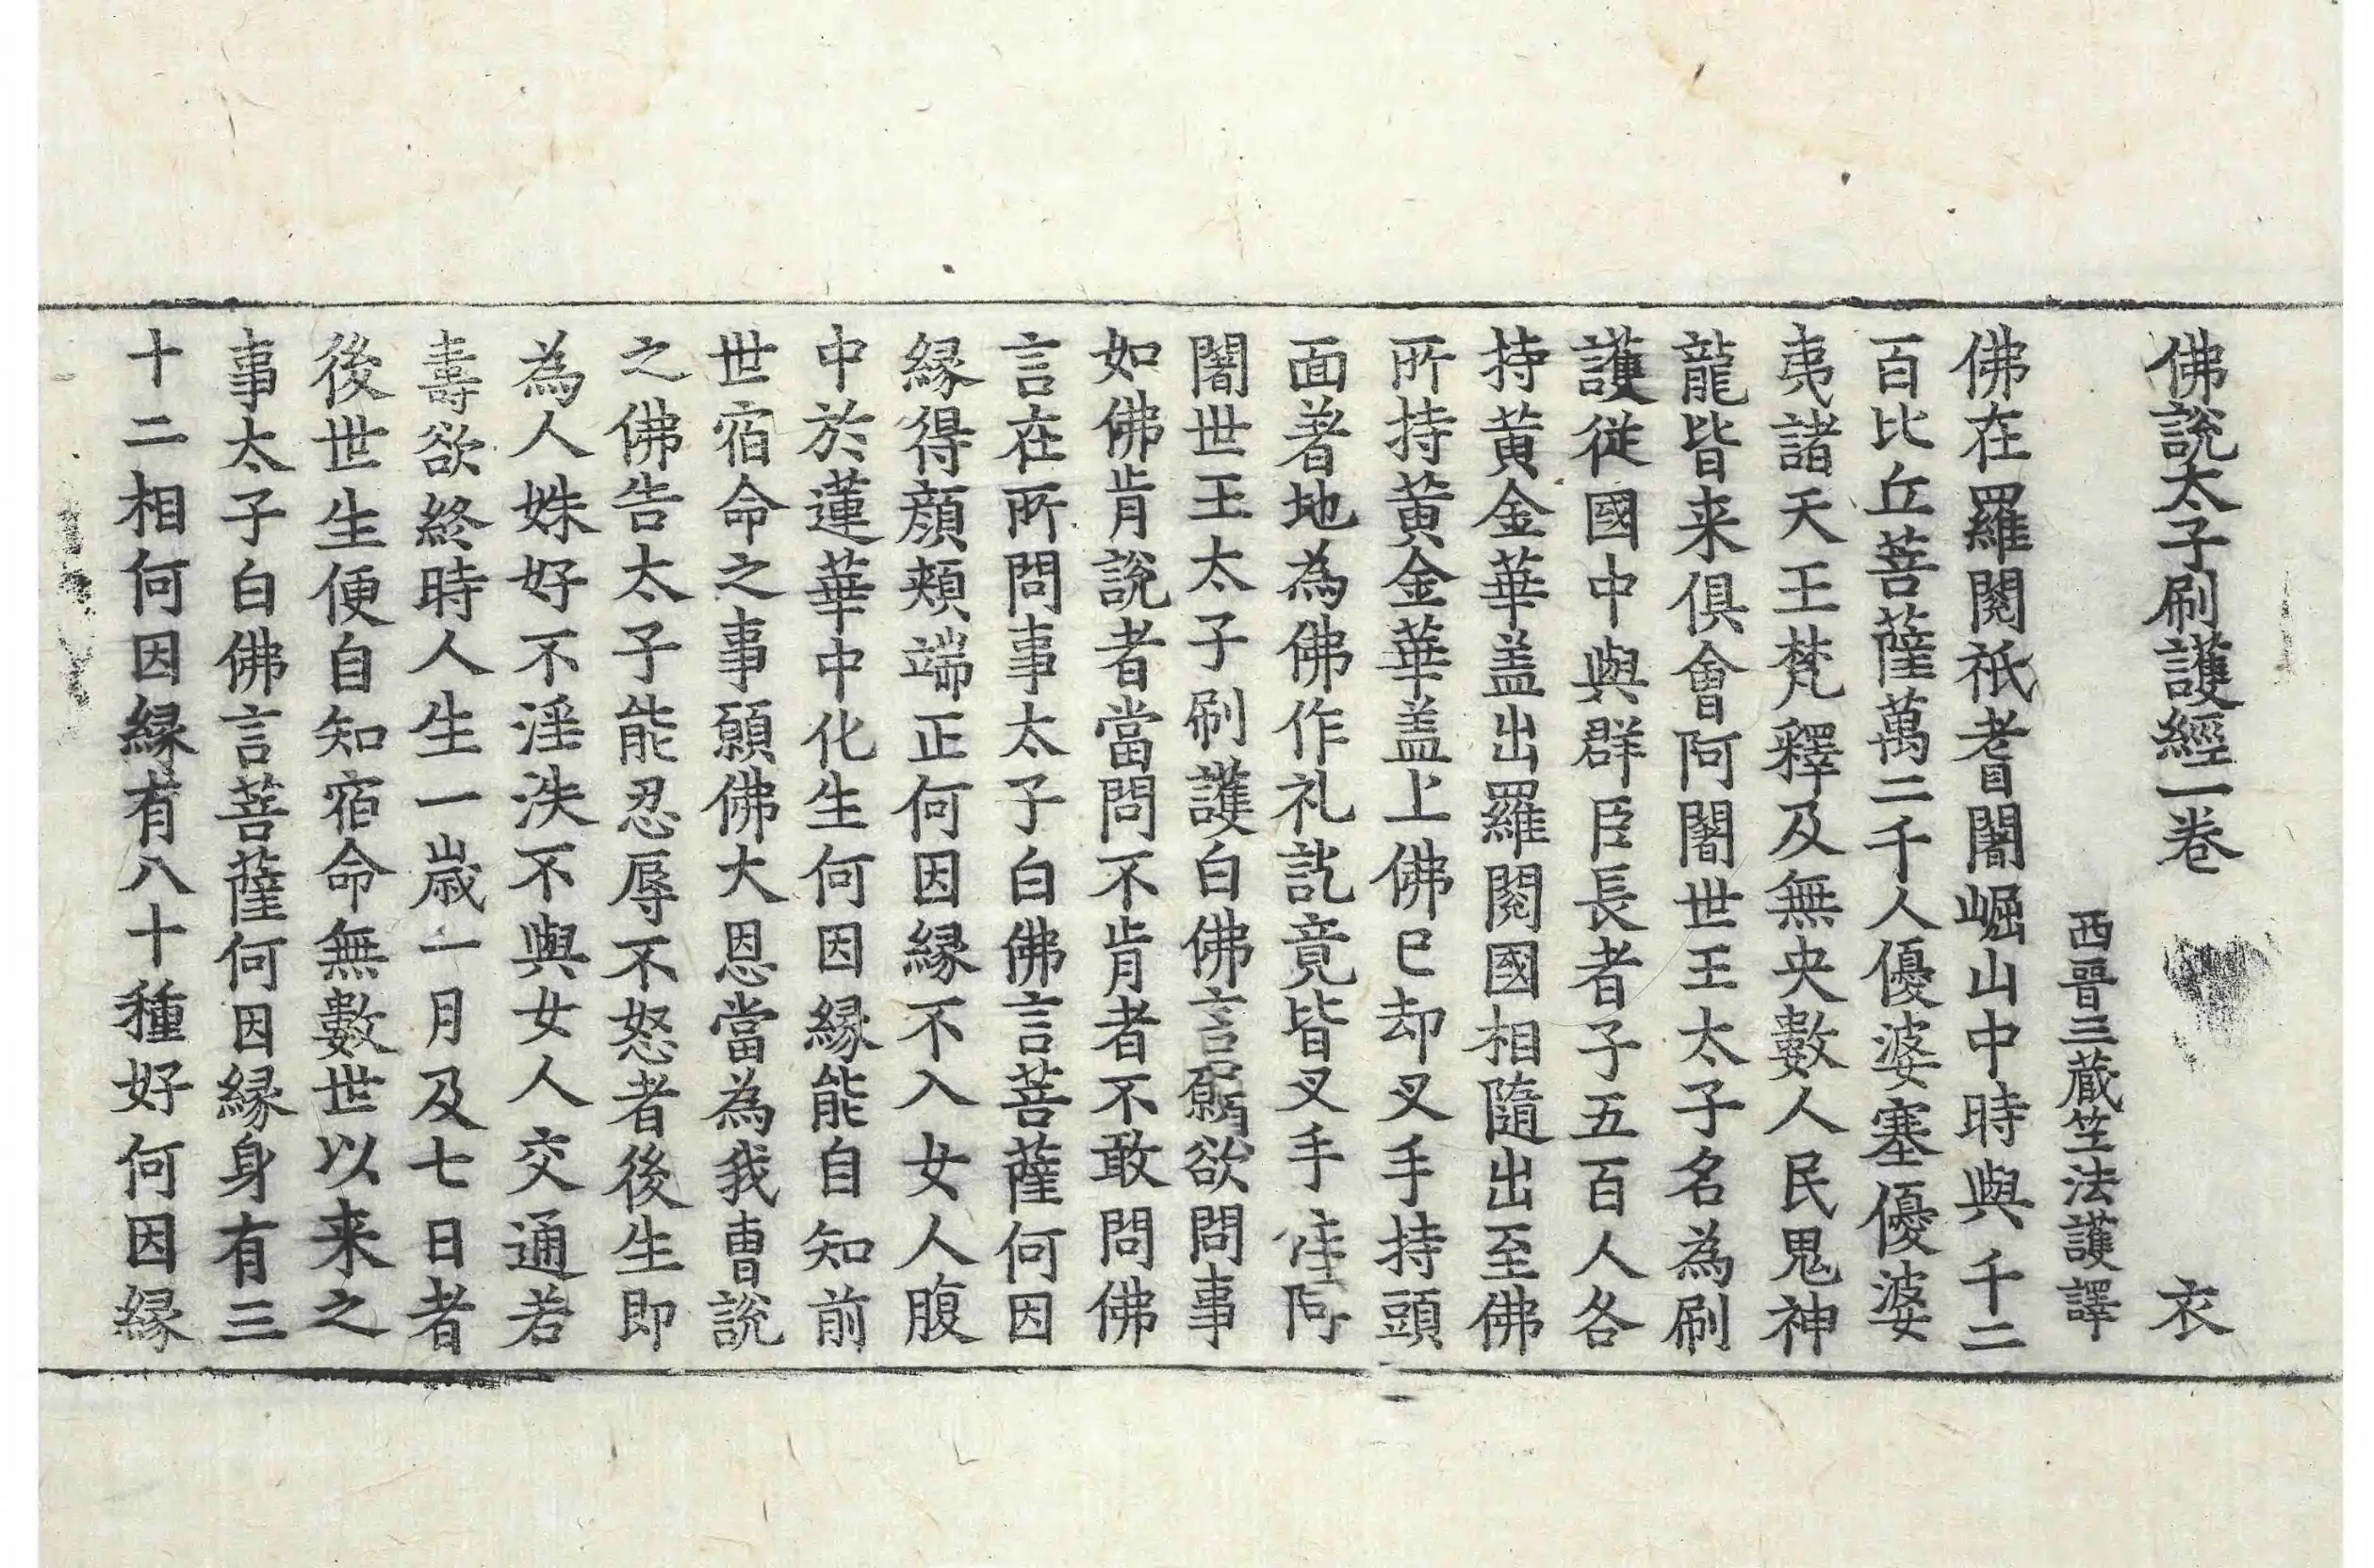 佛說太子刷護經一卷 衣
西晉三藏竺法護譯
佛在羅閱祇耆闍崛山中時與千二
百比丘菩薩萬二千人優婆塞優婆
夷諸天王梵釋及無央數人民鬼神
龍皆来俱會阿闍世王太子名為刷
護從國中與群臣長者子五百人各
持黃金華盖出羅閱國相隨出至佛
所持黃金華盖上佛已却叉手持頭
面著地為佛作礼訖竟皆叉手住阿
闍世王太子刷護白佛言願欲問事
如佛肯說者當問不肯者不敢問佛
言在所問事太子白佛言菩薩何因
緣得顏頰端正何因緣不入女人腹
中於蓮華中化生何因緣能自知前
世宿命之事願佛大恩當為我曹說
之佛告太子能忍辱不怒者後生即
為人姝好不淫泆不與女人交通若
壽欲終時人生一歲一月及七日者
後世生便自知宿命無數世以来之
事太子白佛言菩薩何因緣身有三
十二相何因緣有八十種好何因緣